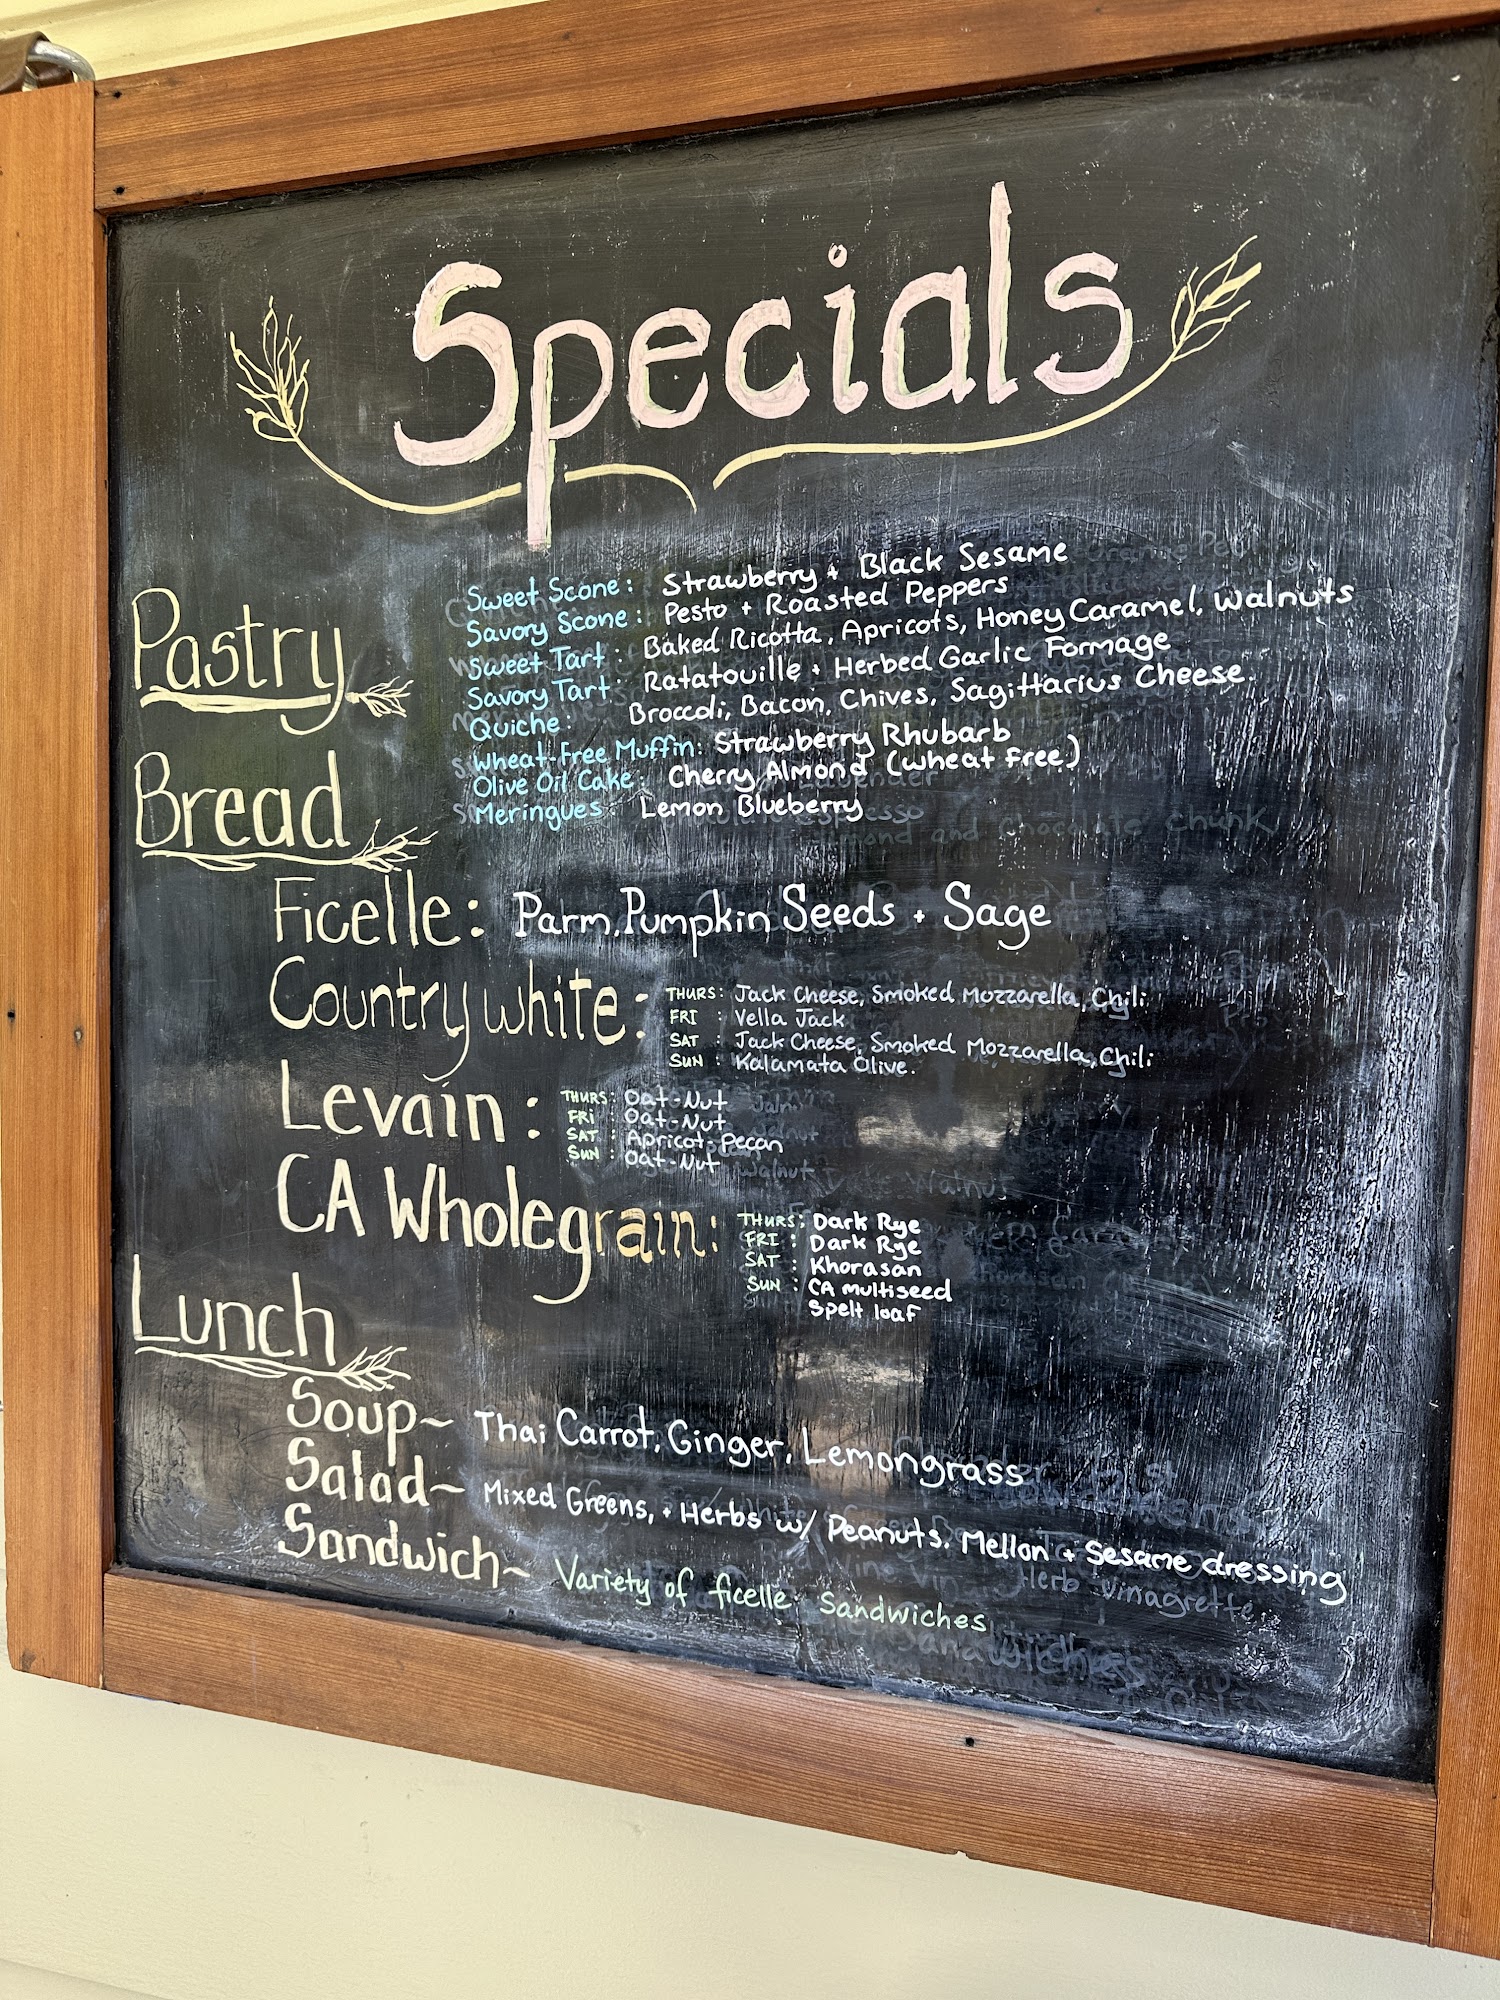 Specials
Pastry
Sweet Scone: Strawberry + Black Sesame
Savory Scone: Pesto + Roasted Peppers
Sweet Tart: Baked Ricotta, Apricots, Honey Caramel, Walnuts
Savory Tart: Ratatouille + Herbed Garlic Formage
Quiche: Broccoli, Bacon, Chives, Sagittarius Cheese.
Wheat-Free Muffin: Strawberry Rhubarb
Olive Oil Cake: Cherry Almond (Wheat Free)
Meringues: Lemon Blueberry
Bread
Ficelle: Parm, Pumpkin Seeds + Sage
Country white:
THURS: Jack Cheese, Smoked Mozzarella, Chili
FRI: Vella Jack
SAT: Jack Cheese, Smoked Mozzarella, Chili
SUN: Kalamata Olive.
Levain:
THURS: Oat-Nut
FRI: Oat-Nut
SAT: Apricot-Pecan
SUN: Oat-Nut
CA Wholegrain:
THURS: Dark Rye
FRI: Dark Rye
SAT: Khorasan
SUN: CA multiseed
Spelt loaf
Lunch
Soup~ Thai Carrot, Ginger, Lemongrass
Salad~ Mixed Greens, + Herbs w/ Peanuts, Mellon + Sesame dressing
Sandwich~ Variety of ficelle Sandwiches